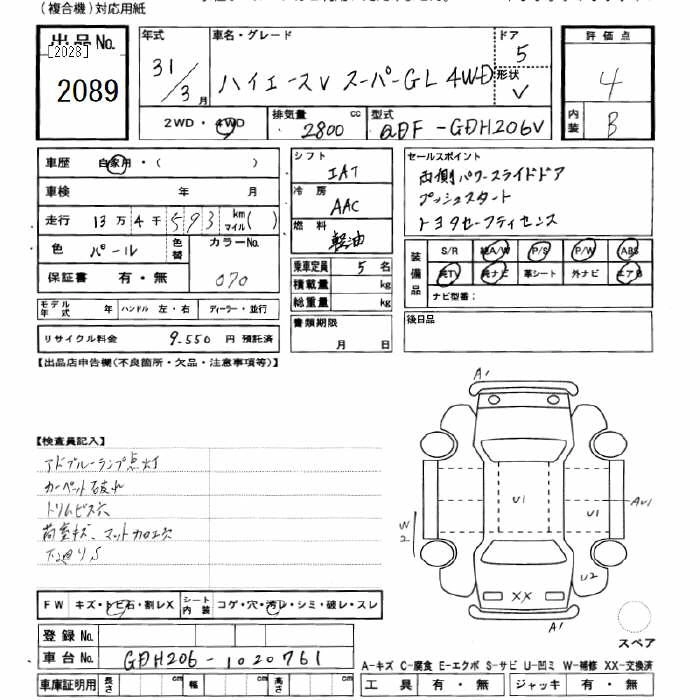 (複合機)対応用紙
出品No.
[2028]
2089
年式
31/3月
車名・グレード
ハイエースV スーパーGL 4WD
ドア
5
形状
V
評価点
4
内装
B
2WD・4WD
排気量
2800 cc
型式
QDF-GDH206V
車歴 自家用・( )
車検 年 月
走行 13万4千593 km マイル( )
色 パール 色替 カラーNo. 070
保証書 有・無
モデル年式 年 ハンドル 左・右 ディーラー・並行
リサイクル料金 9,550 円 預託済
シフト
IAT
冷房
AAC
燃料
軽油
乗車定員 5 名
積載量 kg
総重量 kg
書類期限
月 日
セールスポイント
両側パワースライドドア
プッシュスタート
トヨタセーフティセンス
装備品
S/R 純A/W P/S P/W ABS
純TV 純ナビ 革シート 外ナビ エアB
ナビ型番:
後日品
【出品店申告欄(不良箇所・欠品・注意事項等)】
【検査員記入】
アドブルーランプ点灯
カーペット破れ
トリムビス穴
荷室キズ、マット加工穴
下廻りS
A1
U1
U1
AU1
W2
U2
XX
A1
スペア
FW キズ・トビ石・割レX シート内装 コゲ・穴・汚レ・シミ・破レ・スレ
登録No.
車台No. GDH206-1020761
車庫証明用 長さ cm 幅 cm 高さ cm
A-キズ C-腐食 E-エクボ S-サビ U-凹ミ W-補修 XX-交換済
工具 有・無 ジャッキ 有・無